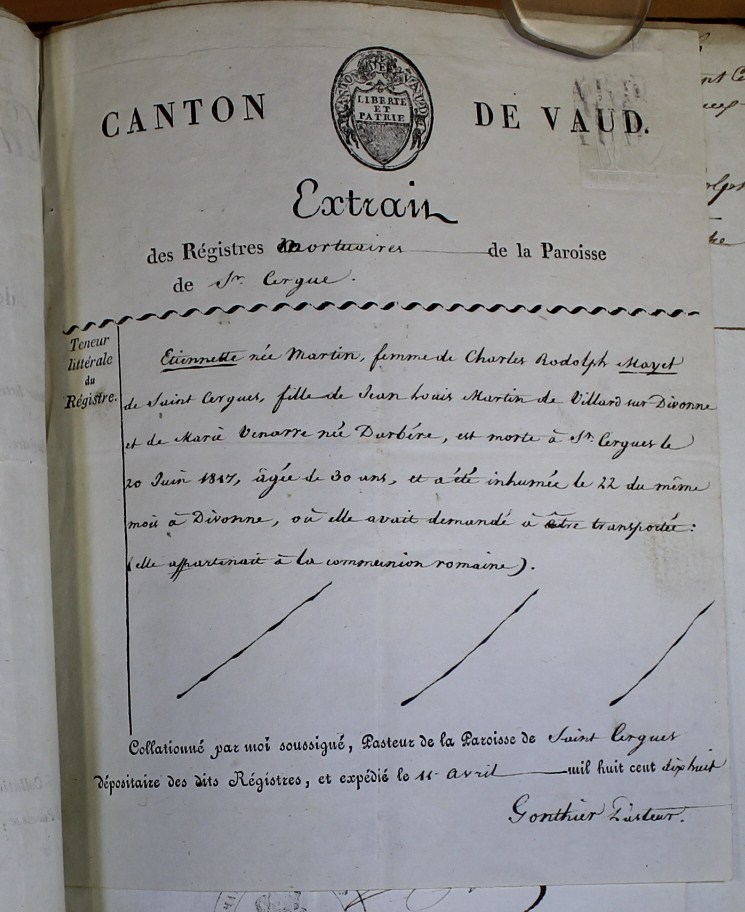 CANTON DE VAUD.
CANTON DE VAUD
LIBERTÉ
ET
PATRIE
Extrait
des Régistres Mortuaires de la Paroisse
de St. Cergue.
Teneur
littérale
du
Régistre.
Etiennette née Martin, femme de Charles Rodolph Mayet
de Saint Cergues, fille de Jean Louis Martin de Villard sur Divonne
et de Marie Venarre née Darbére, est morte à St. Cergues le
20 Juin 1817, âgée de 30 ans, et a été inhumée le 22 du même
mois à Divonne, où elle avait demandé à être transportée :
(elle appartenait à la communion romaine).
Collationné par moi soussigné, Pasteur de la Paroisse de Saint Cergues
dépositaire des dits Régistres, et expédié le 11 avril mil huit cent dix huit
Gonthier Pasteur.